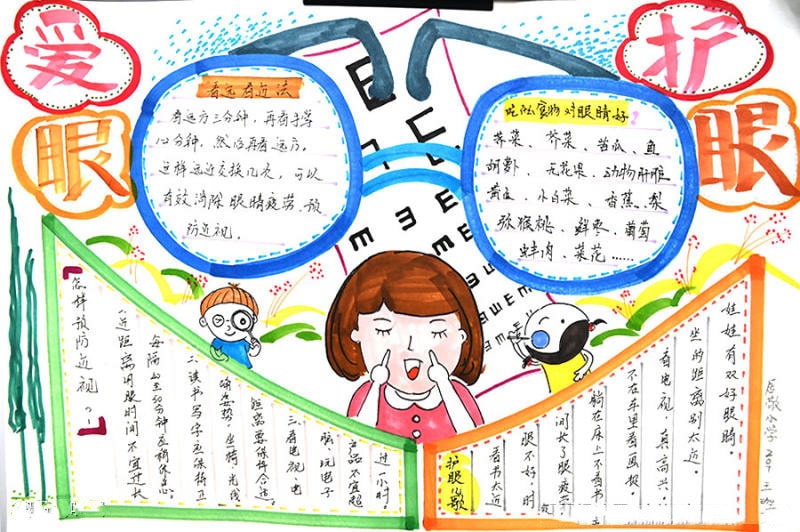 爱眼
护眼
看远看近法
看远方三分钟，再看手掌
1~2分钟，然后再看远方。
这样远近交换几次，可以
有效消除眼睛疲劳、预
防近视。
吃啥食物对眼睛好？
荠菜、芥菜、苦瓜、鱼
胡萝卜、无花果、动物肝脏
黄豆、小白菜、香蕉、梨
猕猴桃、鲜枣、葡萄
蚌肉、菜花……
怎样预防近视？
一、近距离用眼时间不宜过长
每隔40至50分钟应稍休息。
二、读书写字应保持正
确姿势，坐椅、光线
距离要保持合适。
三、看电视、电
脑、玩电子
产品不宜超
过一小时。
护眼歌
看书太近
眼不好，时
间长了眼疲劳
躺在床上不看书
不在车里看画报。
看电视，真高兴，
坐的距离别太近。
娃娃有双好眼睛。
小学